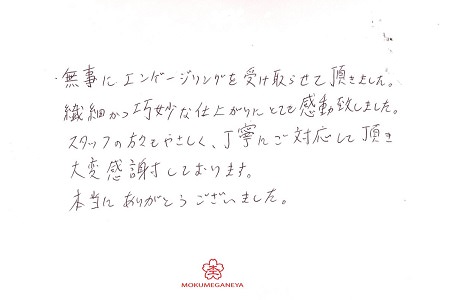 無事にエンゲージリングを受け取らせて頂きました。
繊細かつ巧妙な仕上がりにとても感動致しました。
スタッフの方々もやさしく、丁寧にご対応して頂き
大変感謝しております。
本当にありがとうございました。
MOKUMEGANEYA